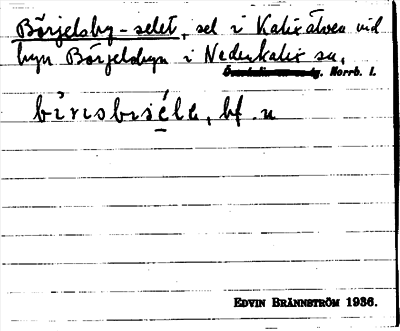 Börjelsby-selet, sel i Kalix älven vid
byn Börjelsbyn i Nederkalix sn,
Norrb. l.
bì̀risbisélɛ, bf. n
EDVIN BRÄNNSTRÖM 1936.